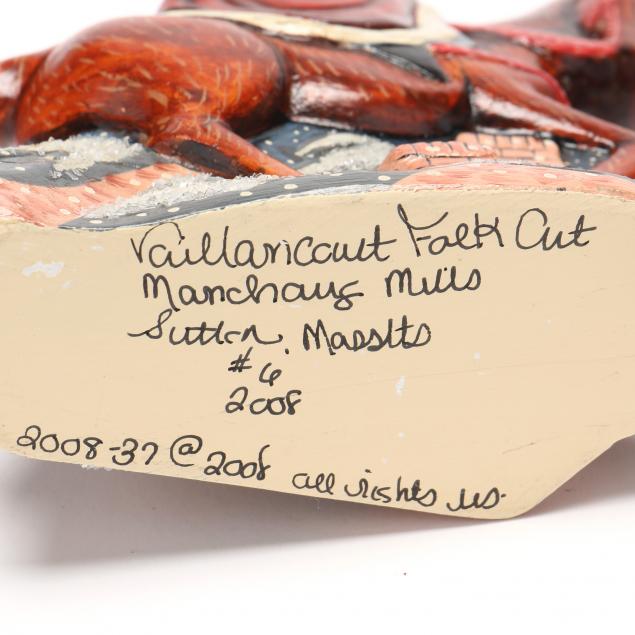 Vaillancourt Folk Art
Manchaug Mills
Sutton, Massts
#6
2008
2008-37 @ 2008 all rights res.